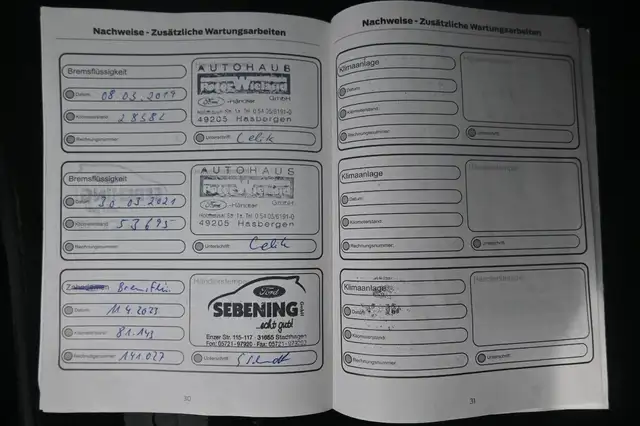 Nachweise - Zusätzliche Wartungsarbeiten
Bremsflüssigkeit
Datum: 08.03.2019
Kilometerstand: 28582
Rechnungsnummer:
AUTOHAUS
Ford -Händler GmbH
49205 Hasbergen
Unterschrift: Celik
Bremsflüssigkeit
Datum: 30.03.2021
Kilometerstand: 53695
Rechnungsnummer:
AUTOHAUS
Ford -Händler GmbH
49205 Hasbergen
Unterschrift: Celik
Bremsflüs.
Datum: 11.4.2023
Kilometerstand: 81.143
Rechnungsnummer: 141.027
Händlerstempel
Ford
SEBENING GmbH
...echt gut!
Enzer Str. 115-117 · 31655 Stadthagen
Fon: 05721-97920 - Fax: 05721-979202
Unterschrift:
30
Nachweise - Zusätzliche Wartungsarbeiten
Klimaanlage
Datum:
Kilometerstand:
Rechnungsnummer:
Unterschrift:
Klimaanlage
Datum:
Kilometerstand:
Rechnungsnummer:
Unterschrift:
Klimaanlage
Datum:
Kilometerstand:
Rechnungsnummer:
Händlerstempel
Unterschrift:
31